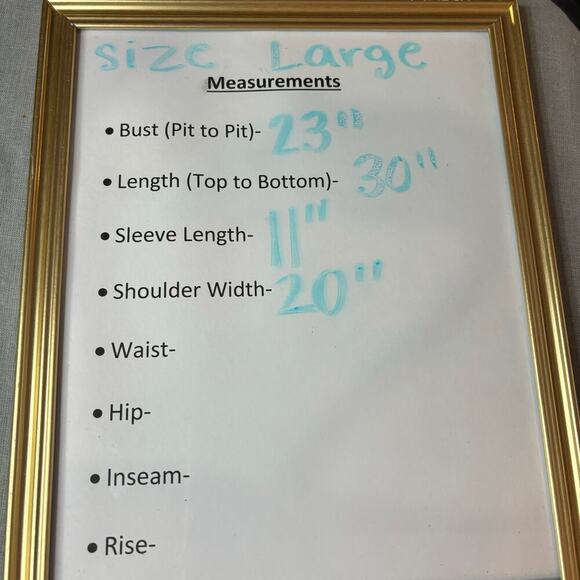 Size Large
Measurements
• Bust (Pit to Pit)- 23"
• Length (Top to Bottom)- 30"
• Sleeve Length- 11"
• Shoulder Width- 20"
• Waist-
• Hip-
• Inseam-
• Rise-